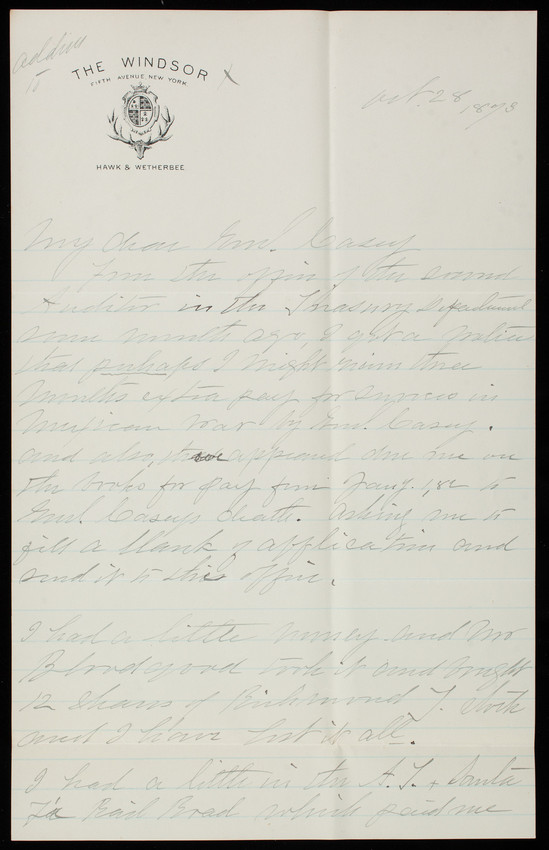 address
to
THE WINDSOR
FIFTH AVENUE, NEW YORK
HAWK & WETHERBEE
Oct. 28
My dear Genl. Casey
From the office of the second
Auditor in the Treasury Department
some months ago, I got a notice
that perhaps I might
months extra pay for services in
Mexican War by Genl. Casey.
and also, there appeared due me on
the books for pay from Jany. 1, 82 to
Genl. Caseys death. Asking me to
fill a blank of application and
send it to this office.
I had a little money and Mr
Bloodgood took it and bought
12 shares of Richmond T. Stock
and I have lost it all.
I had a little in the A. T. & Santa
Fe Rail Road which paid me